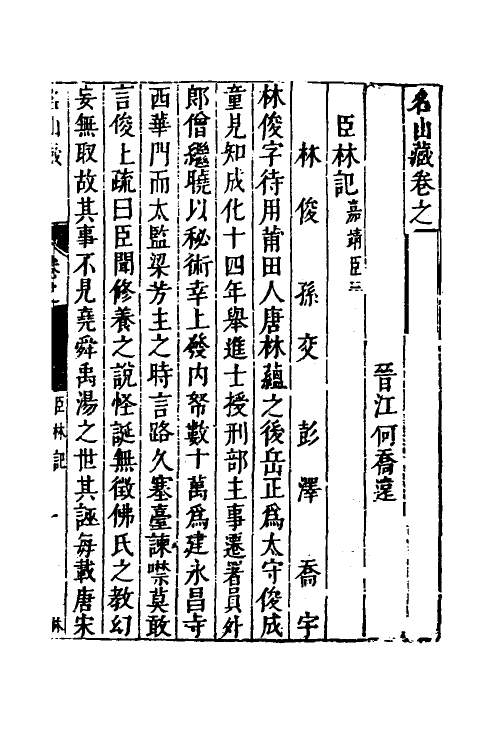 名山藏卷之一
晉江何喬遠
臣林記嘉靖臣
林俊 孫交 彭澤 喬宇
林俊字待用莆田人唐林蘊之後岳正爲太守俊成
童見知成化十四年舉進士授刑部主事遷署員外
郎僧繼曉以秘術幸上發内帑數十萬爲建永昌寺
西華門而太監梁芳主之時言路久塞臺諫噤莫敢
言俊上疏曰臣聞修養之說怪誕無徵佛氏之教幻
妄無取故其事不見堯舜禹湯之世其誣每載唐宋
名山藏 臣林記 一 林